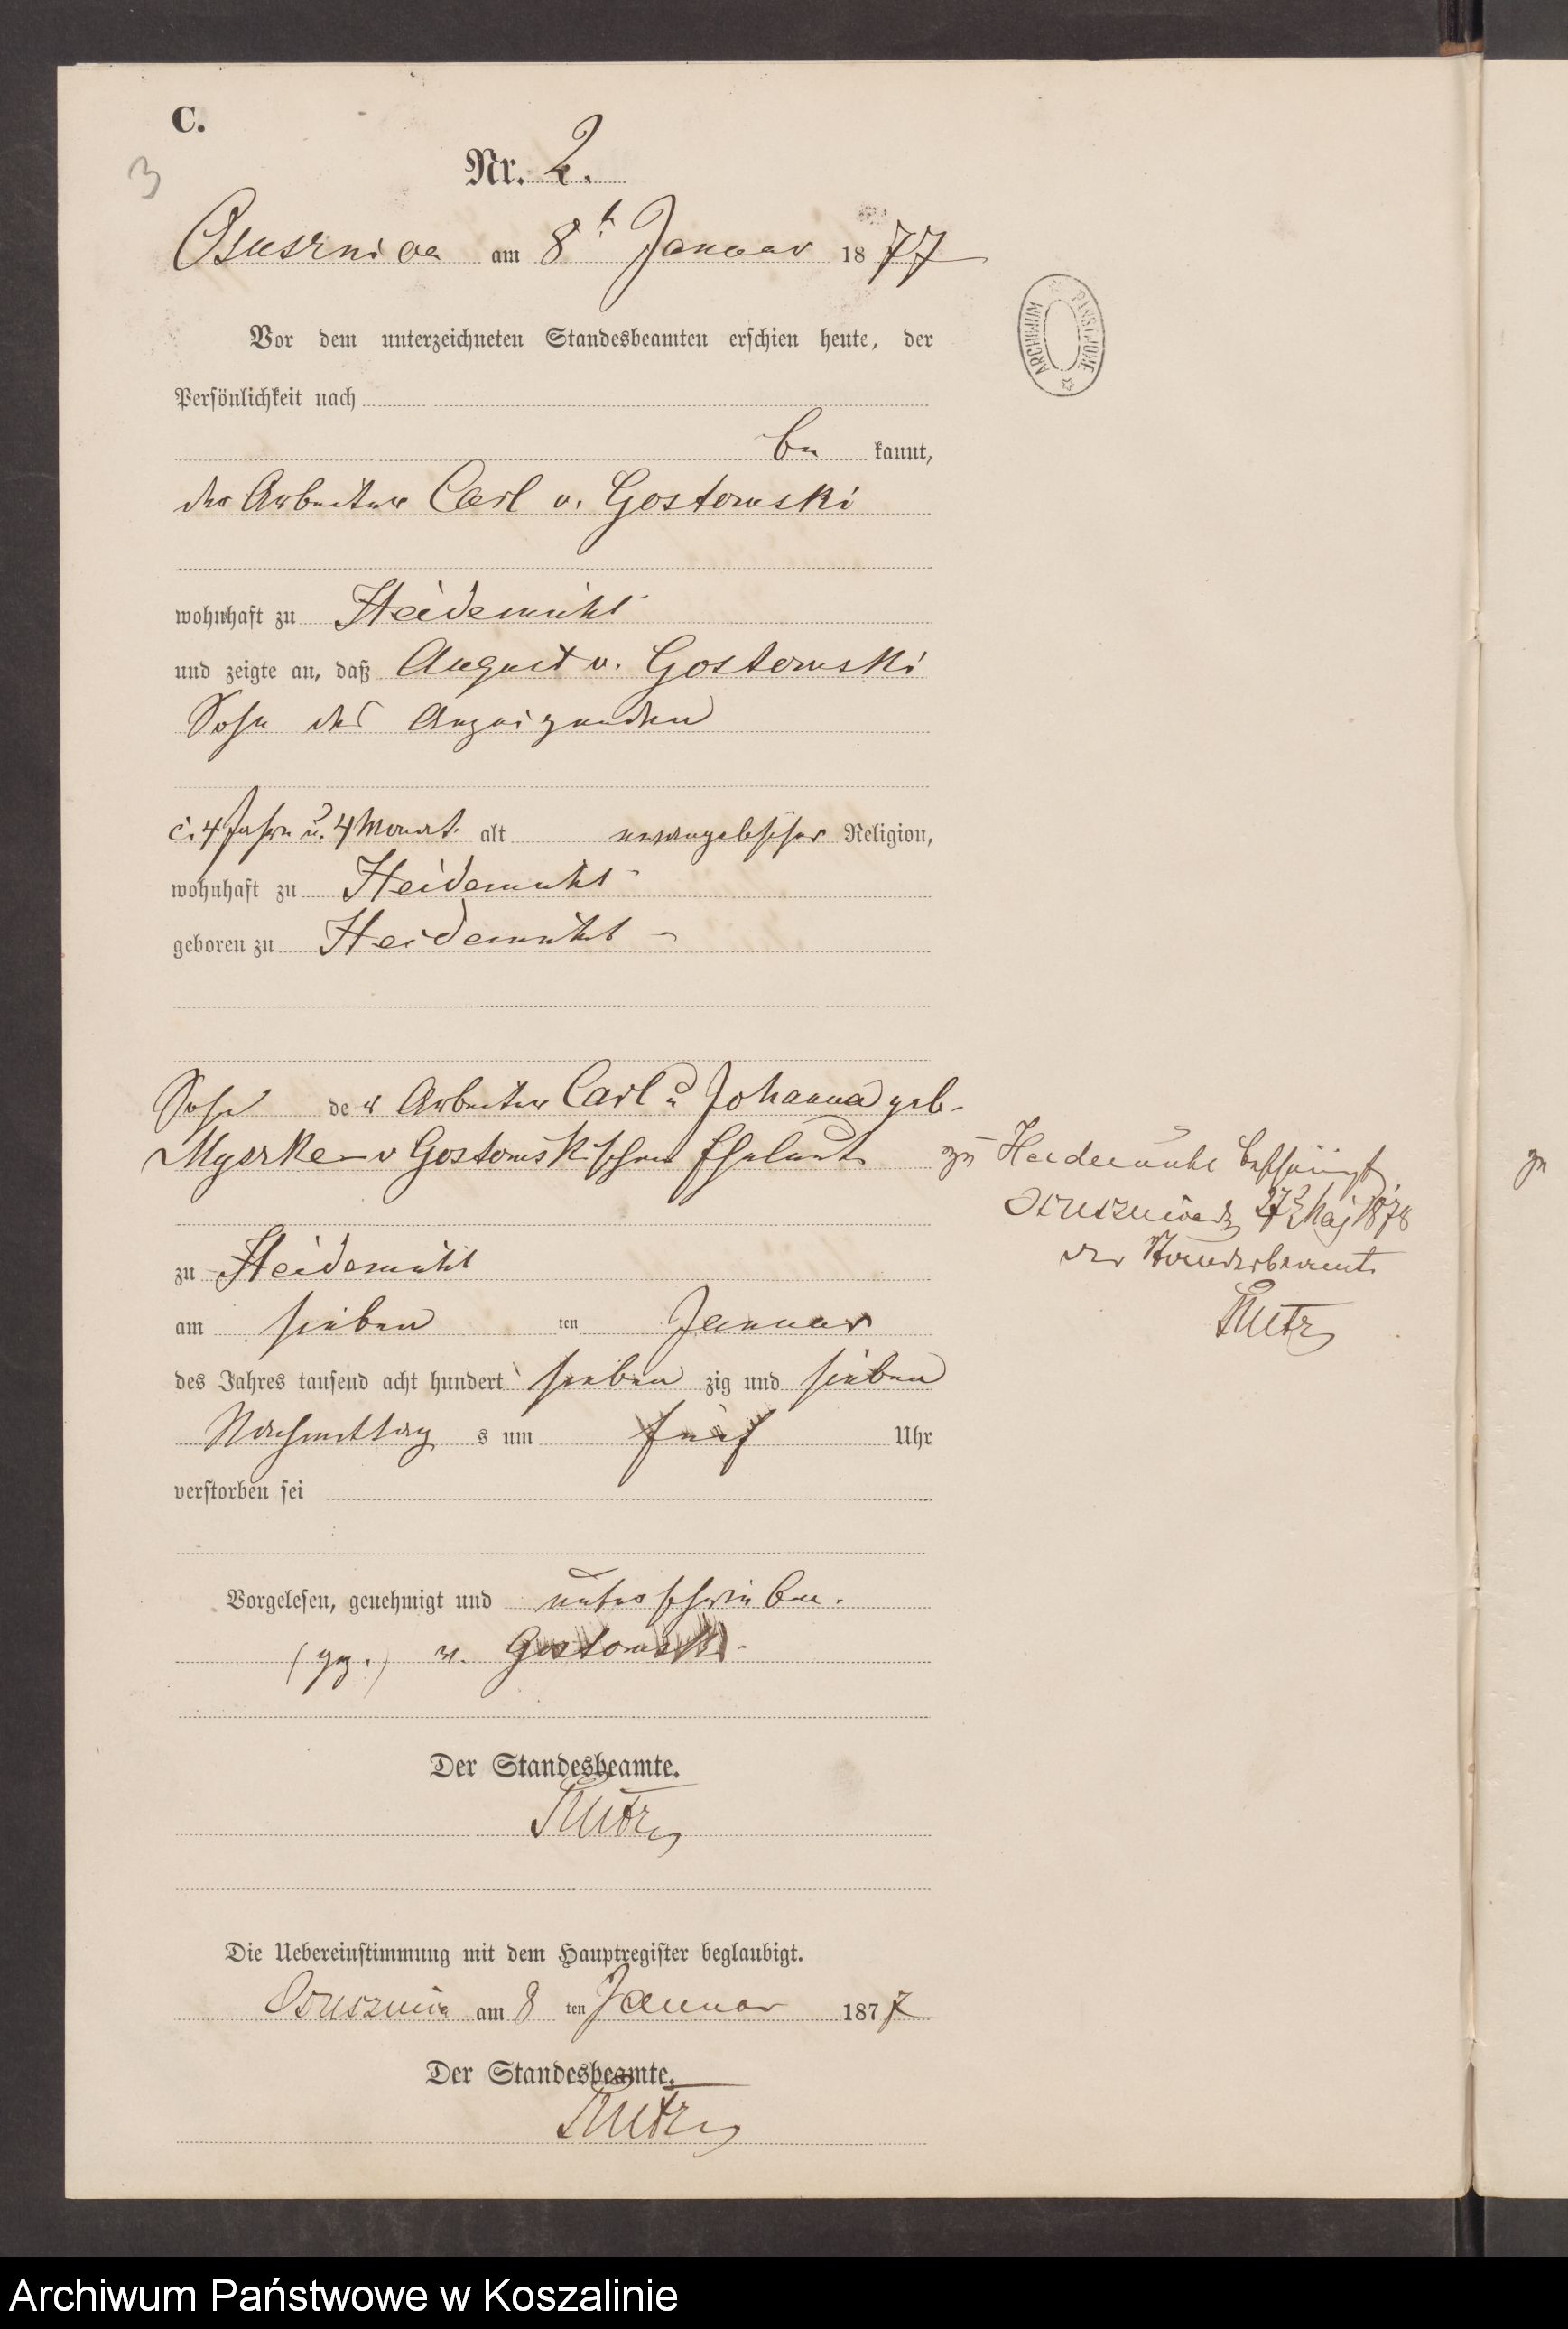 C.
3
Nr. 2.
Osusznica am 8t Januar 1877
ARCHIWUM PAŃSTWOWE
Vor dem unterzeichneten Standesbeamten erschien heute, der
Persönlichkeit nach
be kannt,
der Arbeiter Carl v. Gostomski
wohnhaft zu Heidemühl
und zeigte an, daß August v. Gostomski
Sohn des Anzeigenden
4 Jahre u. 4 Monat. alt evangelischer Religion,
wohnhaft zu Heidemühl
geboren zu Heidemühl
Sohn der Arbeiter Carl u Johanna geb.
v Gostomskischen Eheleute
zu Heidemühl
zu Heidemühl
27 Mai 1878
der Standesbeamte
am sieben ten Januar
des Jahres tausend acht hundert sieben zig und sieben
Nachmittag s um fünf Uhr
verstorben sei
Vorgelesen, genehmigt und unterschrieben.
(gez.) v. Gostomski
Der Standesbeamte.
Die Uebereinstimmung mit dem Hauptregister beglaubigt.
Osusznica am 8 ten Januar 1877
Der Standesbeamte.
Archiwum Państwowe w Koszalinie